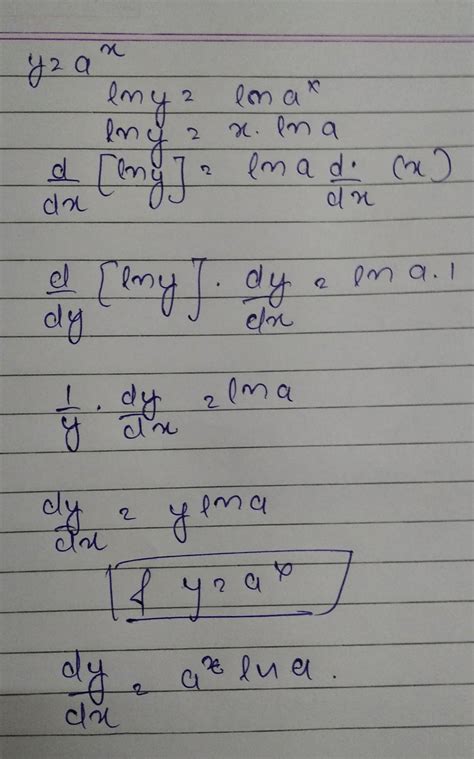 y = a^x
ln y = ln a^x
ln y = x. ln a
d/dx [ln y] = ln a d/dx (x)
d/dy [ln y] . dy/dx = ln a . 1
1/y . dy/dx = ln a
dy/dx = y ln a
{ y = a^x
dy/dx = a^x ln a .